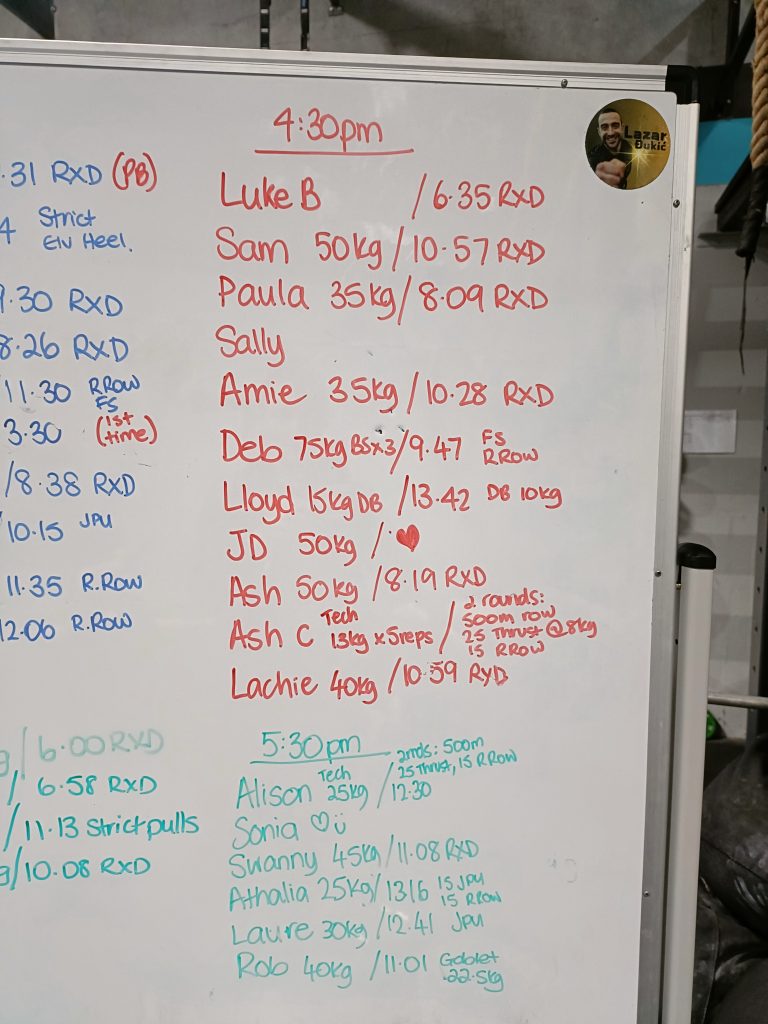 .31 RXD (PB)
4 Strict
Elv Heel.
9.30 RXD
8.26 RXD
/11.30 RROW
FS
3.30 (1st
time)
/8.38 RXD
10.15 JPU
11.35 R.ROW
12.06 R.ROW
g/6.00 RXD
/ 6.58 RXD
/11.13 Strict pulls
g/10.08 RXD
4:30pm
Luke B /6.35 RXD
Sam 50kg/10.57 RXD
Paula 35kg/8.09 RXD
Sally
Amie 35kg/10.28 RXD
Deb 75kg BS x3/9.47 FS
RROW
Lloyd 15kg DB /13.42 DB 10kg
JD 50kg /
Ash 50kg /8.19 RXD
Ash C Tech
13kg x 5reps / 2 rounds:
500m row
25 Thrust @8kg
15 RROW
Lachie 40kg /10.59 RXD
5:30pm
Alison Tech
25kg / 2rnds: 500m
25 Thrust, 15 RROW
12.30
Sonia
Swanny 45kg/11.08 RXD
Athalia 25kg/1316 15 JPU
15 RROW
Laure 30kg/12.41 JPU
Rob 40kg /11.01 Goblet
22.5kg
Lazar
Đukić